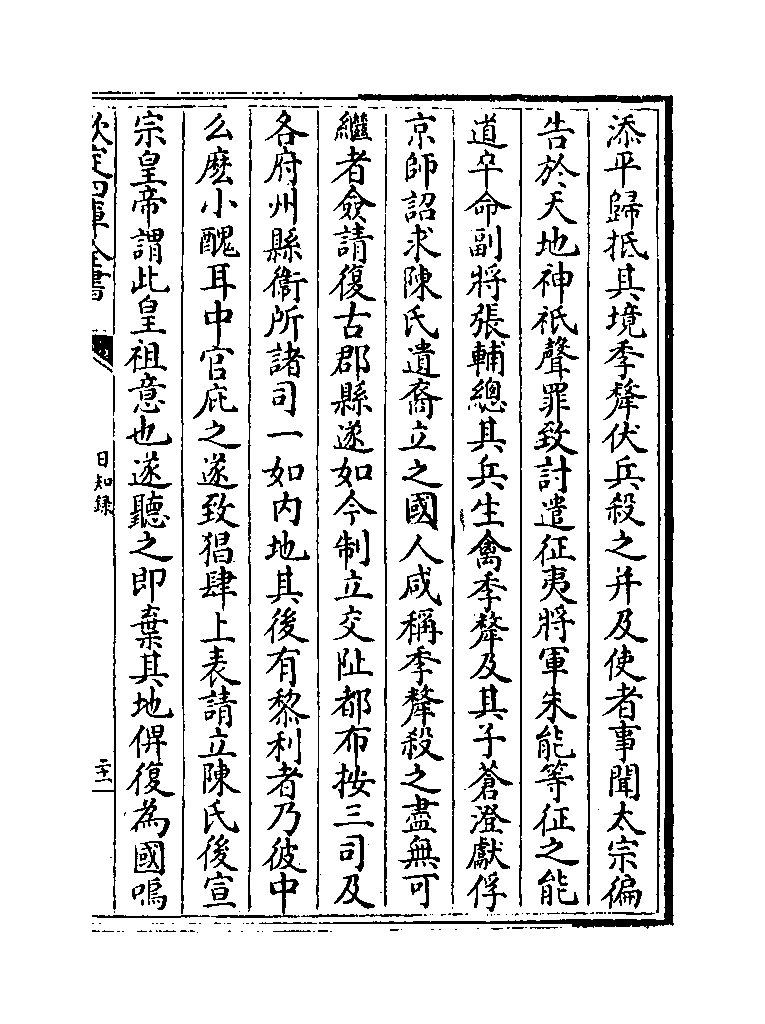 添平歸抵其境季犛伏兵殺之并及使者事聞太宗徧
告於天地神祇聲罪致討遣征夷將軍朱能等征之能
道卒命副將張輔總其兵生禽季犛及其子蒼澄獻俘
京師詔求陳氏遺裔立之國人咸稱季犛殺之盡無可
繼者僉請復古郡縣遂如今制立交阯都布按三司及
各府州縣衛所諸司一如内地其後有黎利者乃彼中
么麽小醜耳中官庇之遂致猖肆上表請立陳氏後宣
宗皇帝謂此皇祖意也遂聽之即棄其地俾復為國嗚
欽定四庫全書
日知錄
二十一